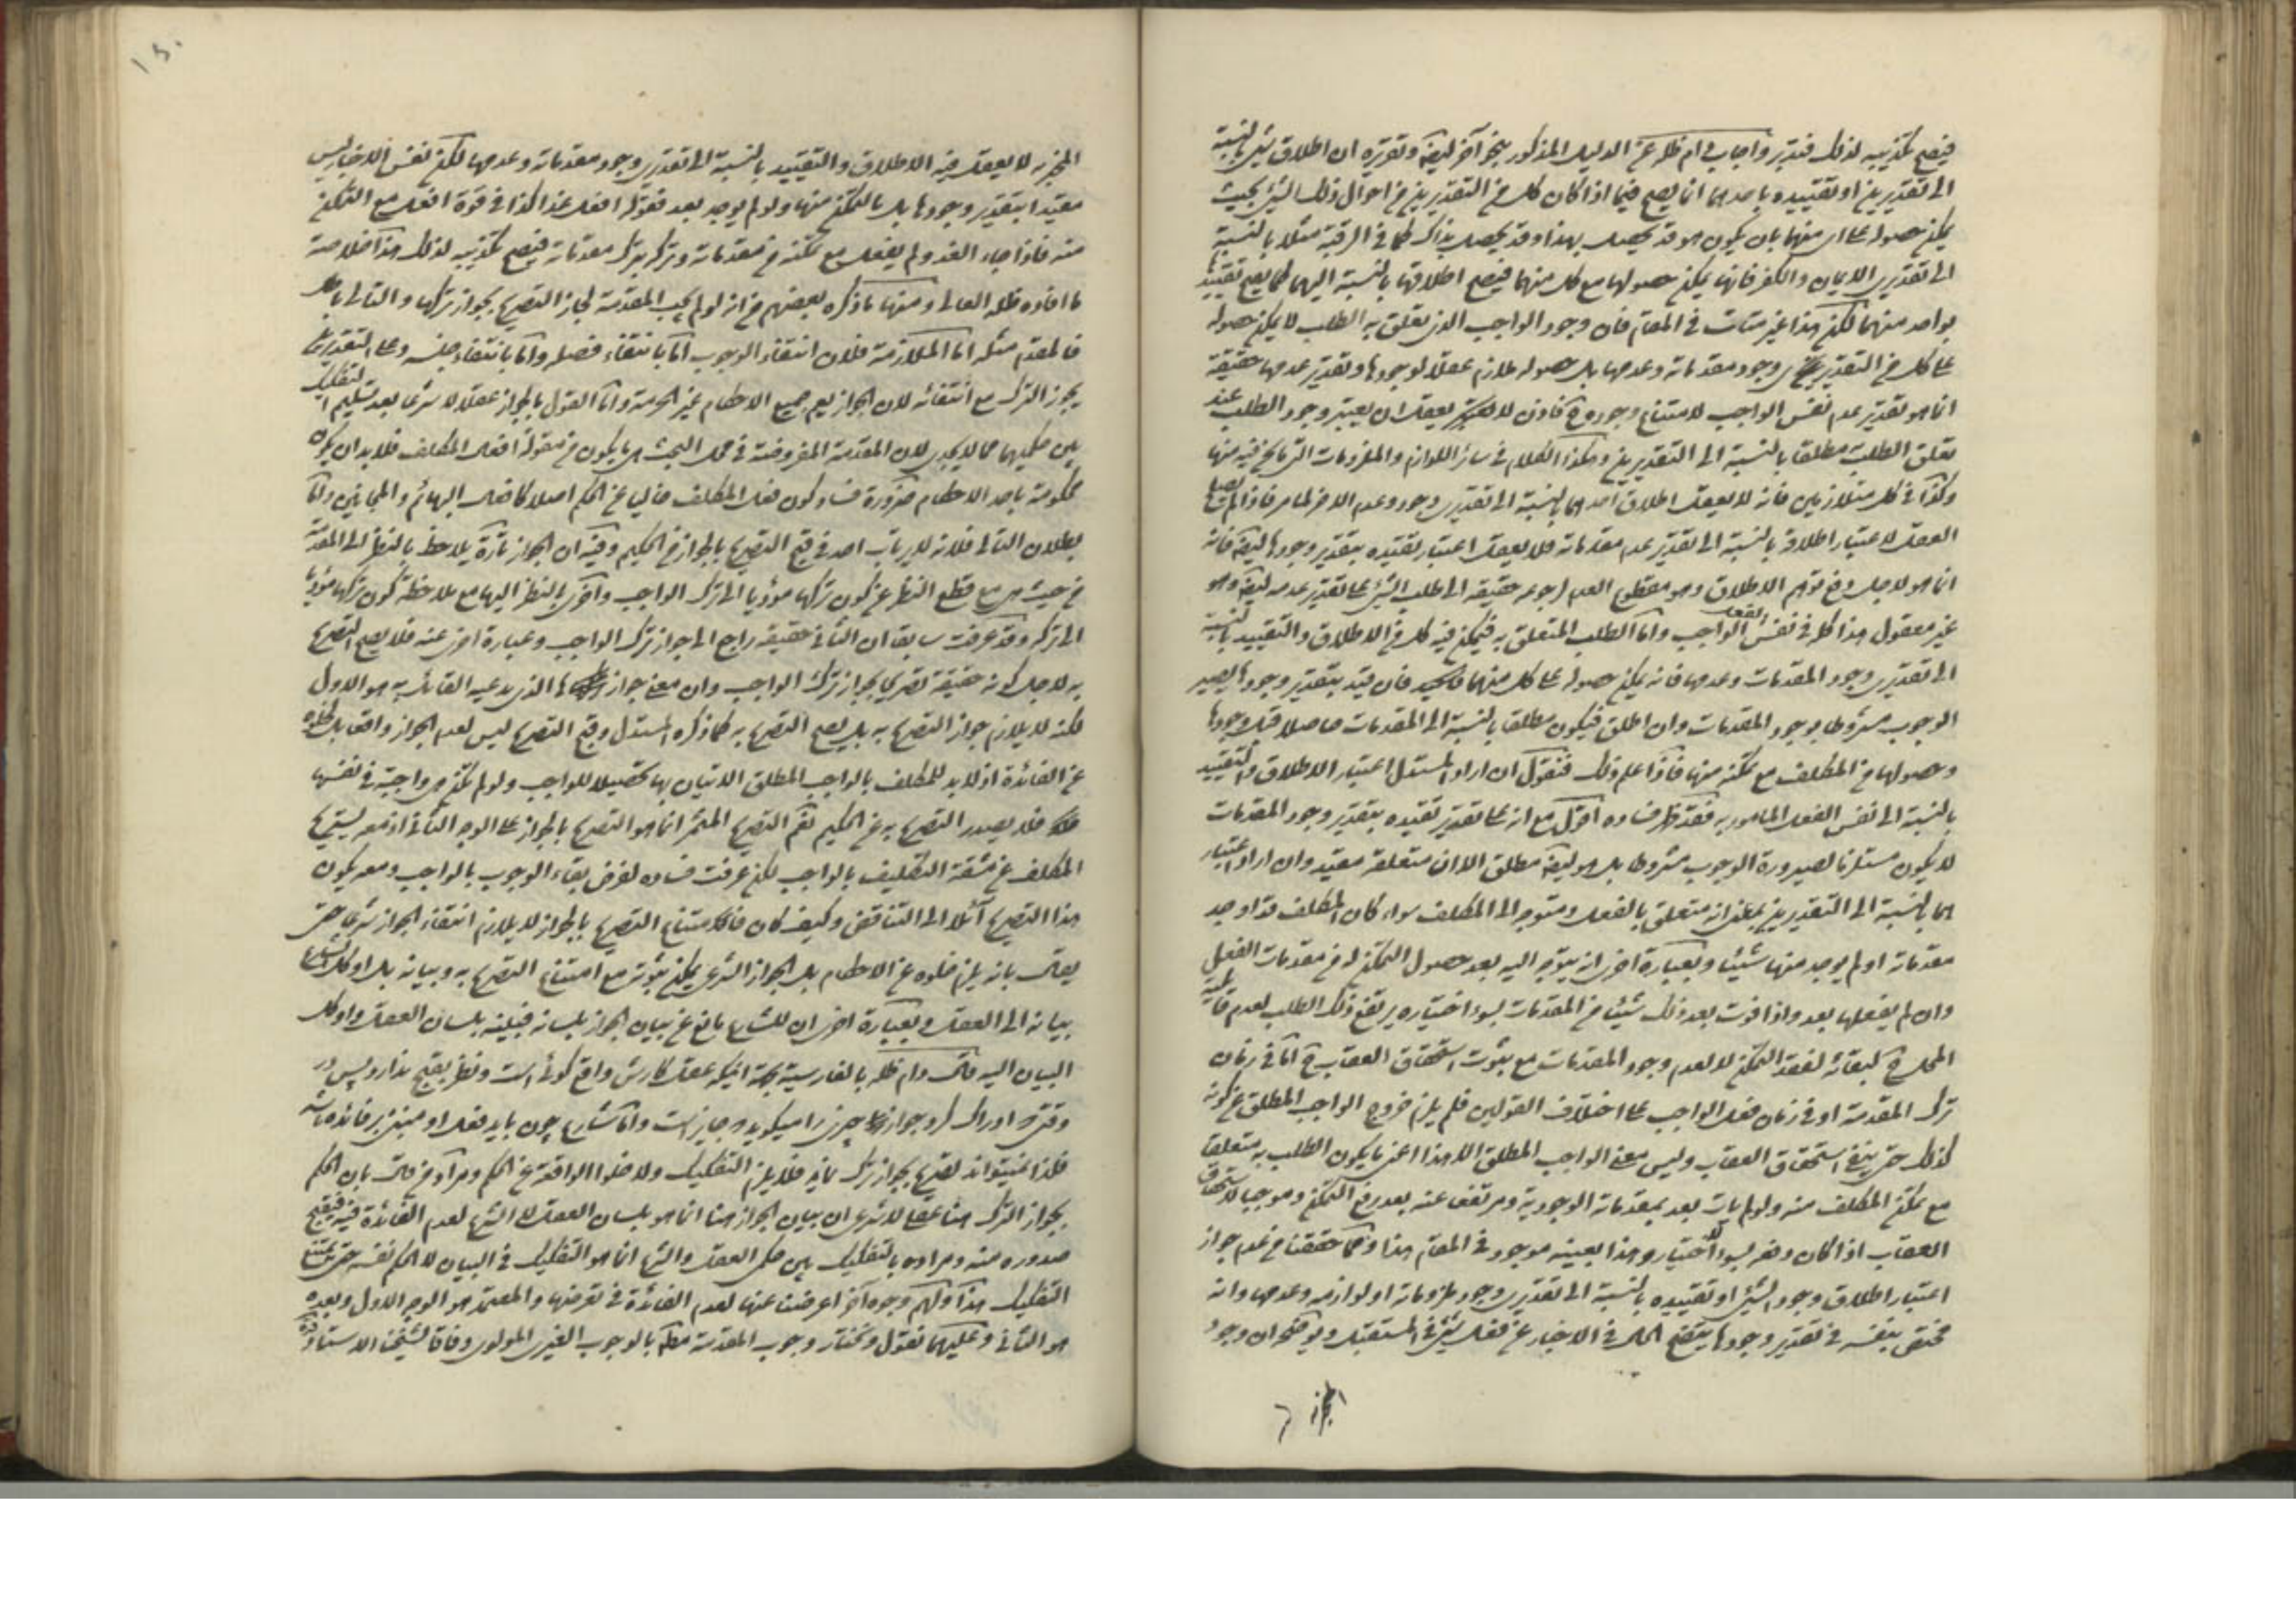 فيصح تكذيبه لذلك فتدبر واجاب دام ظله عن الدليل المذكور بنحو آخر ايضا وتقريره ان اطلاق شيء بالنسبة
الى تقديرين او تقييده باحدهما انما يصح فيما اذا كان كل من التقديرين من احوال ذلك الشيء بحيث
يمكن حصوله على اي منهما بان يكون هو قد يحصل بهذا وقد يحصل بذاك كما في الرقبة مثلا بالنسبة
الى تقديري الايمان والكفر فانها يمكن حصولها مع كل منهما فيصح اطلاقها بالنسبة اليهما كما يصح تقييدها
بواحد منهما لكن هذا غير متأت في المقام فان وجود الواجب الذي يتعلق به الطلب لا يمكن حصوله
على كل من التقديرين اي وجود مقدماته وعدمها بل حصوله ملازم عقلا لوجودها وتقدير عدمها حقيقة
انما هو تقدير عدم نفس الواجب لامتناع وجوده ح فاذن لا يعقل ان يعتبر وجود الطلب عند
تعلق الطلب مطلقا بالنسبة الى التقديرين وهكذا الكلام في سائر اللوازم والملزومات التي ما نحن فيه منها
وكذا في كل متلازمين فانه لا يعقل اطلاق احدهما بالنسبة الى تقديري وجود وعدم الاخر لما مر فاذا لم يصح
العقل لاعتبار اطلاقه بالنسبة الى تقدير عدم مقدماته فلا يعقل اعتبار تقييده بتقدير وجودها ايضا فانه
انما هو لاجل دفع توهم الاطلاق وهو مقطوع العدم لرجوعه حقيقة الى طلب الشيء على تقدير عدمه ايضا وهو
غير معقول هذا كله في نفس الفعل الواجب واما الطلب المتعلق به فيمكن فيه كل من الاطلاق والتقييد بالنسبة
الى تقديري وجود المقدمات وعدمها فانه يمكن حصوله على كل منهما فان قيد بتقدير وجودها يصير
الوجوب مشروطا بوجود المقدمات وان اطلق فيكون مطلقا بالنسبة الى المقدمات حاصلا قبل وجودها
وحصولها من المكلف مع تمكنه منها فاذا علم ذلك فنقول ان اراد المستدل اعتبار الاطلاق والتقييد
بالنسبة الى نفس الفعل المامور به فقد ظهر فساده اقول مع انه على تقدير تقييده بتقدير وجود المقدمات
لا يكون مستلزما لصيرورة الوجوب مشروطا بل هو ايضا مطلق الا ان متعلقه مقيد وان اراد اعتبار
هما بالنسبة الى التقديرين بمعنى انه متعلق بالفعل ومتوجه الى المكلف سواء كان المكلف قد اوجد
مقدماته او لم يوجد منها شيئا وبعبارة اخرى انه يتوجه اليه بعد حصول التمكن له من مقدمات الفعل
وان لم يفعلها بعد واذا فوت بعد ذلك شيئا من المقدمات بسوء اختياره يرتفع ذلك الطلب لعدم قابلية
المحل ح لبقائه لفقد التمكن لا لعدم وجود المقدمات مع ثبوت استحقاق العقاب ح اما في زمان
ترك المقدمة او في زمان فعل الواجب على اختلاف القولين فلم يلزم خروج الواجب المطلق عن كونه
كذلك حتى ينفى استحقاق العقاب وليس معنى الواجب المطلق الا هذا اعني ما يكون الطلب به متعلقا
مع تمكن المكلف منه ولو لم يأت بعد بمقدماته الوجودية ومرتفعا عنه بعد رفع التمكن وموجبا لاستحقاق
العقاب اذا كان رفعه بسوء الاختيار وهذا بعينه موجود في المقام هذا ومما حققنا من عدم جواز
اعتبار اطلاق وجود الشيء او تقييده بالنسبة الى تقديري وجود ملزوماته او لوازمه وعدمها وانه
مختص بنفسه في تقدير وجودها يتضح الحال في الاخبار عن فعل شيء في المستقبل ويوضح ان وجود
المخبر
المخبر به لا يعقل فيه الاطلاق والتقييد بالنسبة الى تقديري وجود مقدماته وعدمها لكن نفس الاخبار ليس
مقيدا بتقدير وجودها بل بالتمكن منها ولو لم يوجد بعد فقوله افعل غدا كذا في قوة افعل مع التمكن
منه فاذا جاء الغد ولم يفعل مع تمكنه من مقدماته وتركه بترك مقدماته فيصح تكذيبه لذلك هذا خلاصة
ما افاده ظله العالي ومنها ما ذكره بعضهم من انه لو لم يجب المقدمة لجاز التصريح بجواز تركها والتالي باطل
فالمقدم مثله اما الملازمة فلان انتفاء الوجوب اما بانتفاء فصله واما بانتفاء جنسه وعلى التقديرين
يجوز الترك مع انتفائه لان الجواز يعم جميع الاحكام غير الحرمة واما القول بالجواز عقلا لا شرعا بعد تسليم التفكيك
بين حكميهما مما لا يجدي لان المقدمة المفروضة في محل البحث هي ما يكون من مقولة افعال المكلف فلا بد ان يكون
محكومة باحد الاحكام ضرورة فساد كون فعل المكلف خاليا عن الحكم اصلا كافعال البهائم والمجانين واما
بطلان التالي فلانه لا يرتاب احد في قبح التصريح بالجواز من الحكيم وفيه ان الجواز تارة يلاحظ بالنظر الى المقدمة
من حيث هي مع قطع النظر عن كون تركها مؤديا الى ترك الواجب واخرى بالنظر اليها مع ملاحظة كون تركها مؤديا
الى تركه وقد عرفت سابقا ان الثاني حقيقة راجع الى جواز ترك الواجب وعبارة اخرى عنه فلا يصح التصريح
به لاجل كونه حقيقة تصريحا بجواز ترك الواجب وان معنى جواز تركها الذي يدعيه القائل به هو الاول
لكنه لا يلازم جواز التصريح به بل يصح التصريح به كما ذكره المستدل وقبح التصريح ليس لعدم الجواز واقعا بل لخلوه
عن الفائدة اذ لا بد للمكلف بالواجب المطلق الاتيان بها تحصيلا للواجب ولو لم تكن هي واجبة في نفسها
فلا يصدر التصريح به عن الحكيم نعم التصريح المثمر انما هو التصريح بالجواز على الوجه الثاني اذ معه يستريح
المكلف عن مشقة التكليف بالواجب لكن عرفت فساده لفرض بقاء الوجوب بالواجب ومعه يكون
هذا التصريح آئلا الى التناقض وكيف كان فامتناع التصريح بالجواز لا يلازم انتفاء الجواز شرعا حتى
يقال بانه يلزم خلوه عن الاحكام بل الجواز الشرعي يمكن ثبوته مع امتناع التصريح به وبيانه بل اوكل الشارع
بيانه الى العقل وبعبارة اخرى ان للشارع مانع عن بيان الجواز بلسانه فيبينه بلسان العقل واوكل
البيان اليه قال دام ظله بالفارسية بجهة اينكه عقل كارش واقع گوئى است ونظر بقبح ندارد پس در
وقتى ادراك كرد جواز چيزى را ميگويد جايز است واما شارع چون بايد فعل او مبتنى بر فائده باشد
فلذا نميتواند تصريح بجواز ترك نمايد فلا يلزم التفكيك ولا خلو الواقعة عن الحكم ومراد من قال بان الحكم
بجواز الترك هنا عقلي لا شرعي ان بيان الجواز هنا انما هو بلسان العقل لا الشرع لعدم الفائدة فيه فيقبح
صدوره منه ومراده بالتفكيك بين حكمي العقل والشرع انما هو التفكيك في البيان لا الحكم نفسه حتى يمتنع
التفكيك هذا ولهم وجوه اخر اعرضنا عنها لعدم الفائدة في تعرضها والمعتمد هو الوجه الاول وبعده
هو الثاني وعليهما نعول ونختار وجوب المقدمة مطلقا بالوجوب الغيري المولوي وفاقا لشيخنا الاستاد